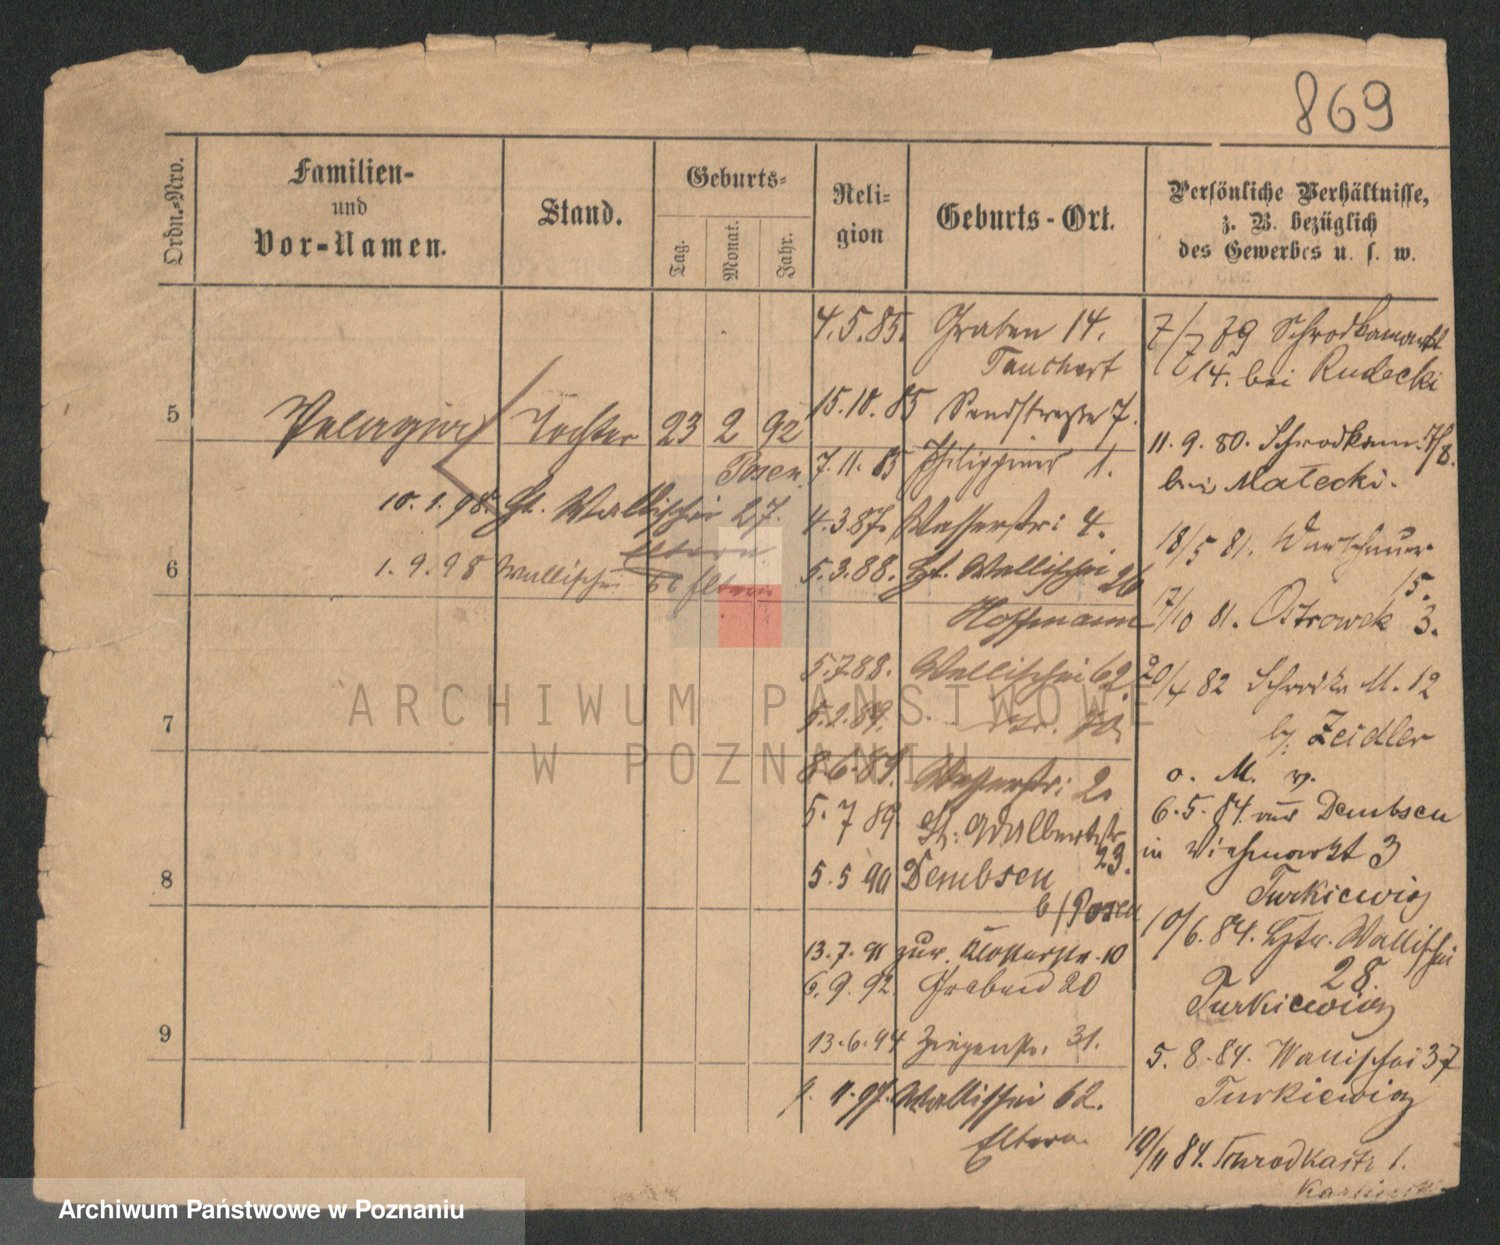 869
Ordn.-Nro.
Familien-
und
Vor-Namen.
Stand.
Geburts-
Tag.
Monat.
Jahr.
Reli-
gion
Geburts-Ort.
Persönliche Verhältnisse,
z. B. bezüglich
des Gewerbes u. s. w.
5
Pelagia Tochter 23 2 92
Posen
10.1.98. Wallischei 27.
Eltern
6
1.9.98 Wallischei Eltern
7
8
9
4.5.85. Graben 14.
Tauchert
15.10.85 Sandstraße 7.
7.11.85 1.
4.3.87. Wasserstr: 4.
5.3.88. Wallischei 26
Hoffmann
5.7.88. Wallischei 62
5.2.89.
8.6.89. Wasserstr: 2.
5.7.89 St: Adalbertstr
23.
5.5.90 Dembsen
b/Posen
13.7.91 zur. Klosterstr. 10
6.9.92. Graben 20
13.6.94 Ziegenstr. 31.
11.97. Wallischei 62.
Eltern
7/7 79 Schrodkamarkt
14. bei Rudecki
11.9.80. Schrodkam. 7/8.
bei Matecki.
18/5 81. Warschauer
15.
17/10 81. Ostrowek 3.
20/4 82 Schrodka M. 12
b. Zeidler
o. M. v.
6.5.84. aus Dembsen
in Viehmarkt 3
Turkiewicz
10/6.84. Wallischei
28.
Turkiewicz
5.8.84. Wallischei 37
Turkiewicz
10/11 84. Schrodkastr 1.
ARCHIWUM PAŃSTWOWE
W POZNANIU
Archiwum Państwowe w Poznaniu